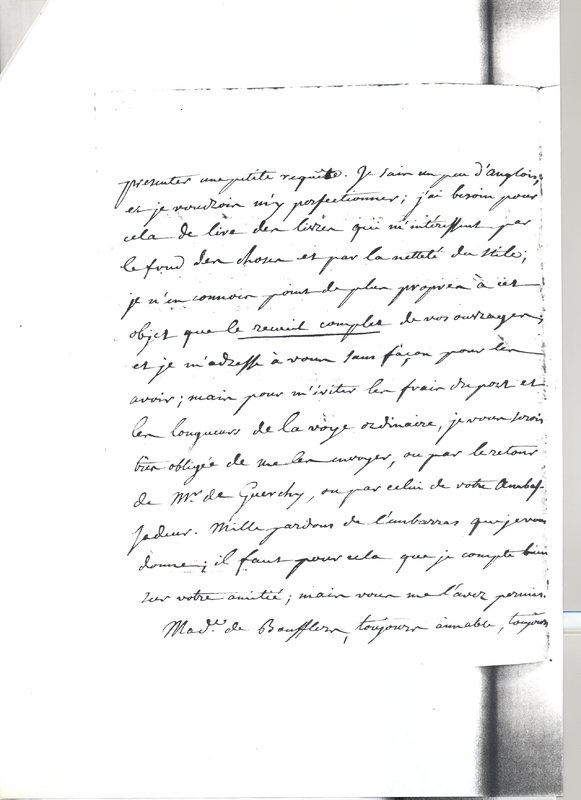 presenter une petite requête. Je sais un peu d'anglois,
et je voudrois m'y perfectionner; j'ai besoin pour
cela de lire des livres qui m'intéressent par
le fond des choses et par la netteté du stile;
je n'en connois point de plus propres à cet
objet que le recueil complet de vos ouvrages,
et je m'adresse à vous sans façon pour les
avoir; mais pour m'éviter les frais du port et
les longueurs de la voye ordinaire, je vous serois
très obligée de me les envoyer, ou par le retour
de Mr. de Guerchy, ou par celui de votre Ambas-
sadeur. Mille pardons de l'embarras que je vous
donne; il faut pour cela que je compte bien
sur votre amitié; mais vous me l'avez permis.
Made. de Boufflers, toujours aimable, toujours